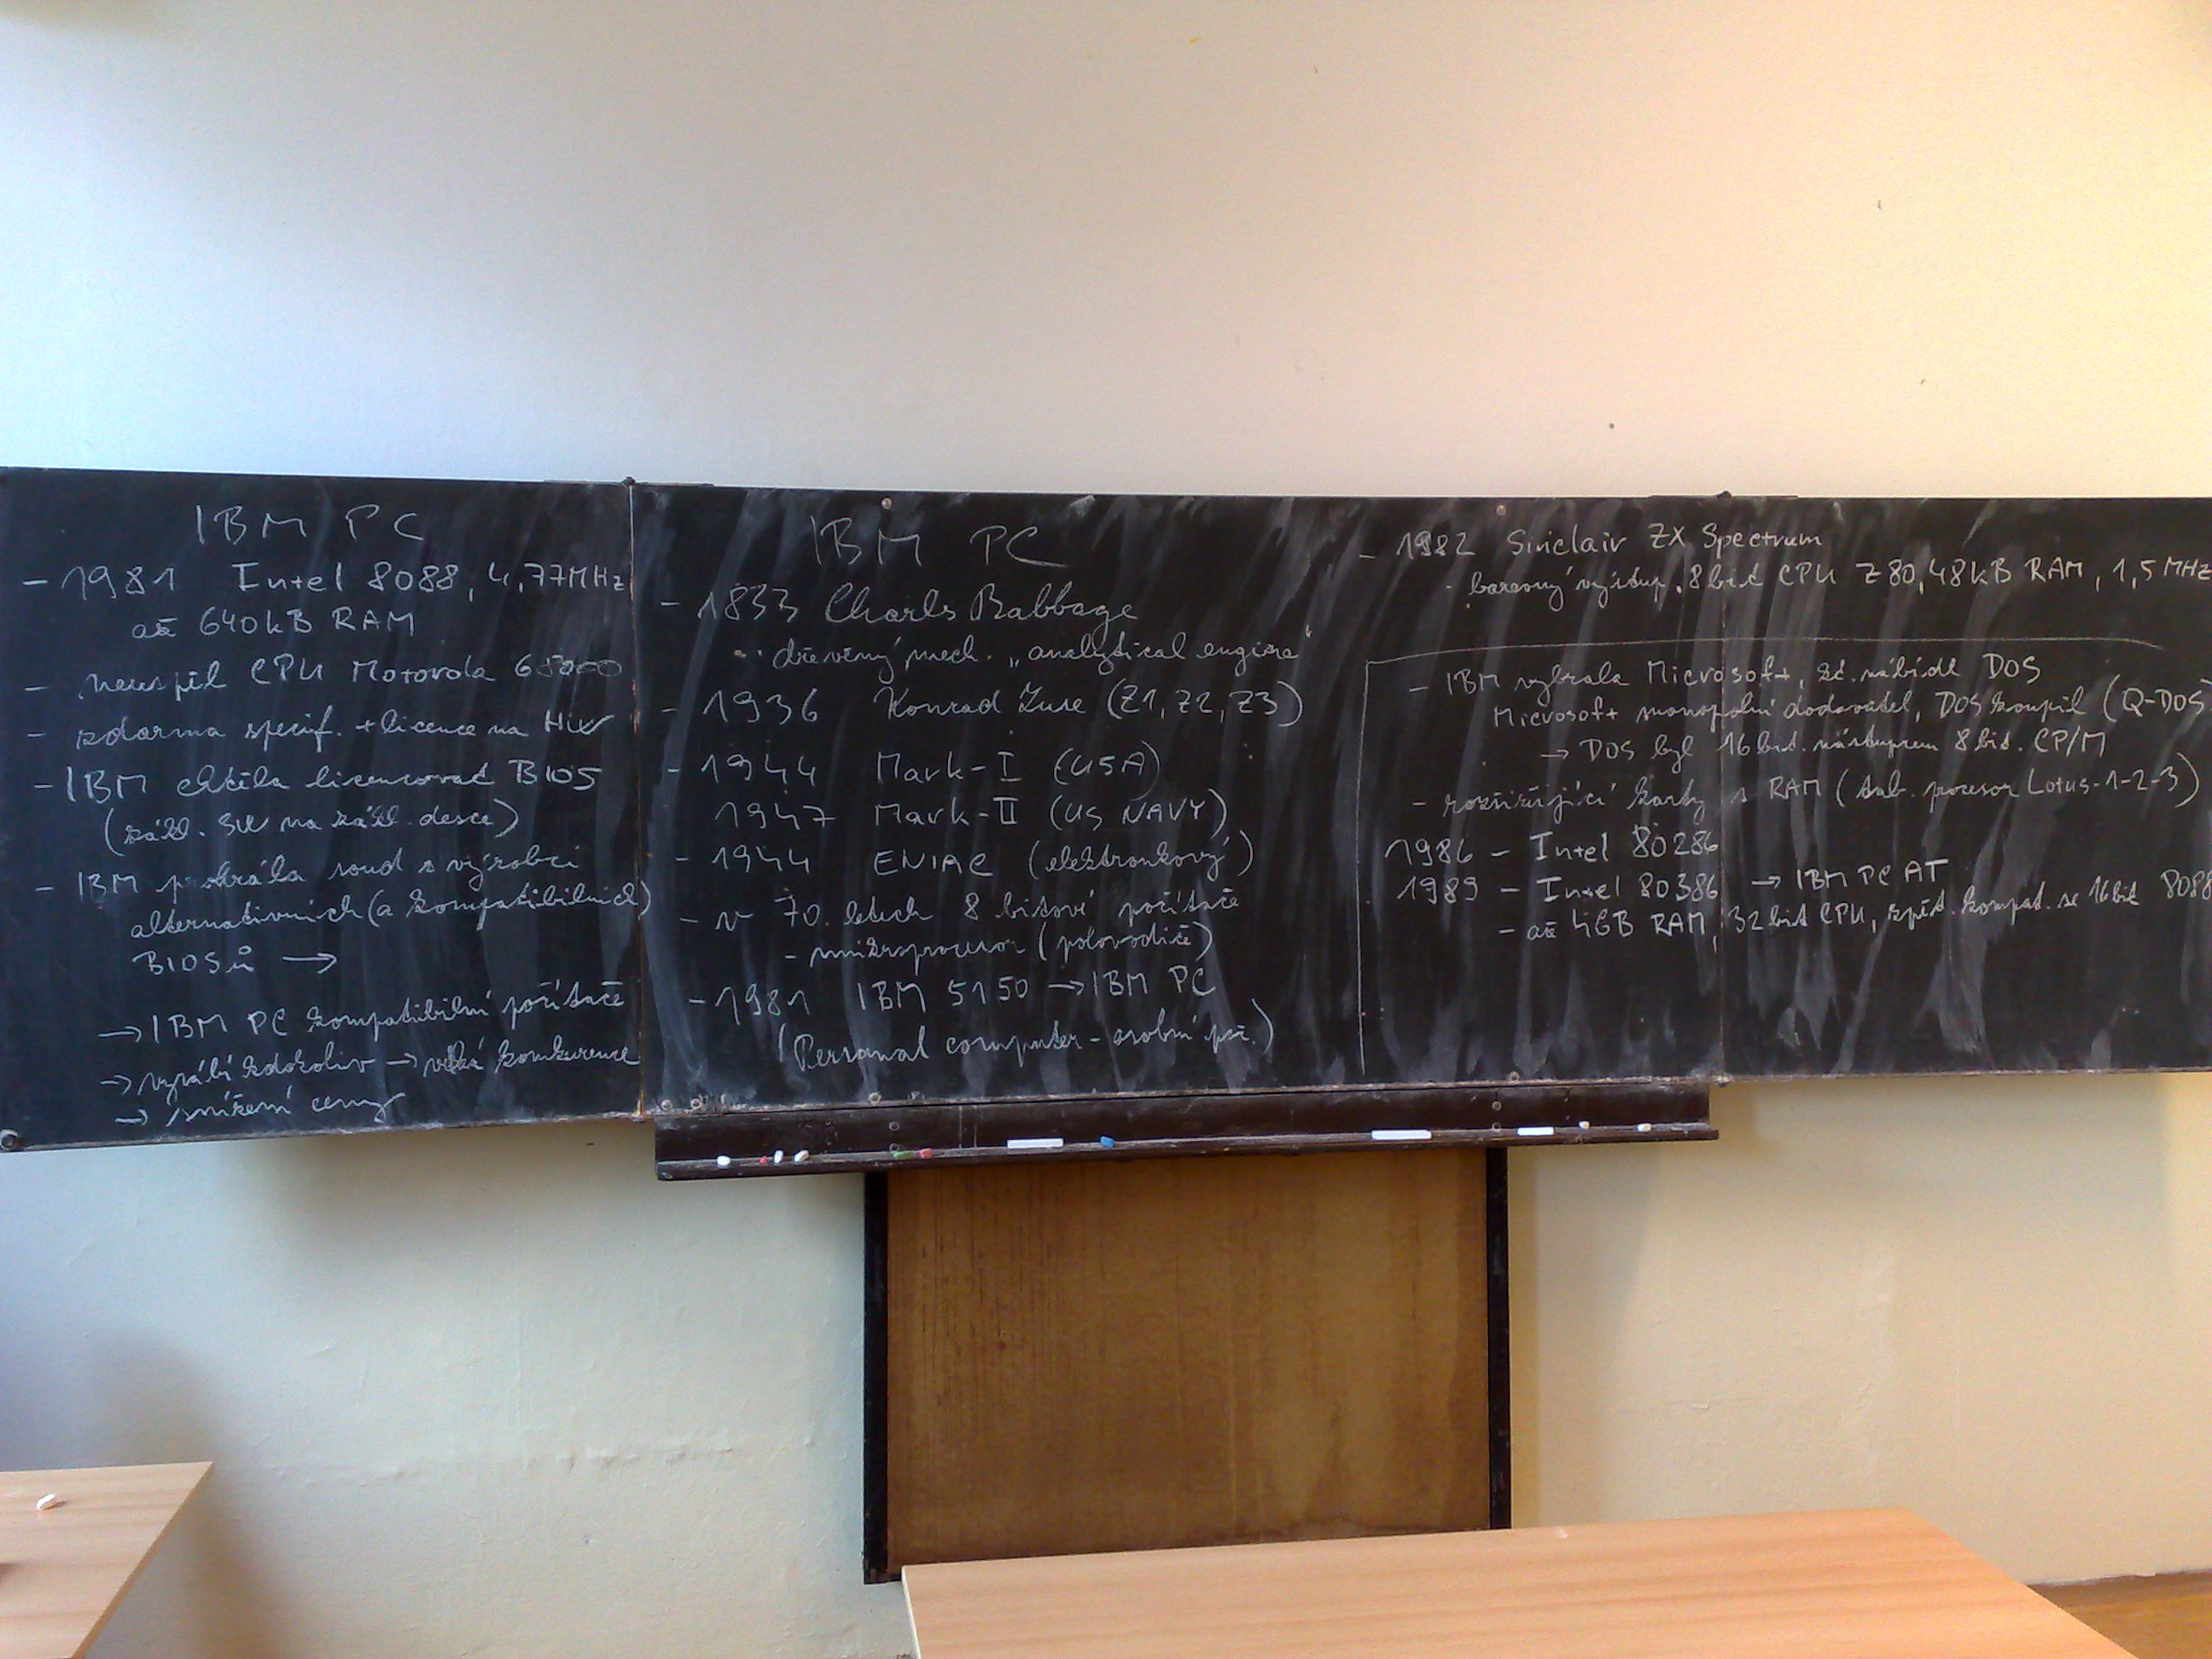 IBM PC
- 1981 Intel 8088, 4,77MHz
až 640kB RAM
- neuspěl CPU Motorola 68000
- zdarma specif. + licence na HW
- IBM chtěla licencovat BIOS
(zákl. SW na zákl. desce)
- IBM prohrála soud s výrobci
alternativních (a kompatibilních)
BIOSů →
→ IBM PC kompatibilní počítače
→ vyrábí kdokoliv → velká konkurence
→ snížení ceny
IBM PC
- 1833 Charls Babbage
- dřevěný mech. „analytical engine"
- 1936 Konrad Zuse (Z1, Z2, Z3)
- 1944 Mark-I (USA)
1947 Mark-II (US NAVY)
- 1944 ENIAC (elektronkový)
- v 70. letech 8 bitové počítače
- mikroprocesor (polovodiče)
- 1981 IBM 5150 → IBM PC
(Personal computer - osobní poč.)
- 1982 Sinclair ZX Spectrum
- barevný výstup, 8 bit CPU Z80, 48kB RAM, 1,5 MHz
- IBM vybrala Microsoft, nabídl DOS
Microsoft monopolní dodavatel, DOS koupil (Q-DOS)
→ DOS byl 16 bit. nástupcem 8 bit. CP/M
- rozšiřující karty s RAM (tab. procesor Lotus-1-2-3)
1986 - Intel 80286
1989 - Intel 80386 → IBM PC AT
- až 4GB RAM, 32 bit CPU, zpět. kompat. se 16 bit 8088